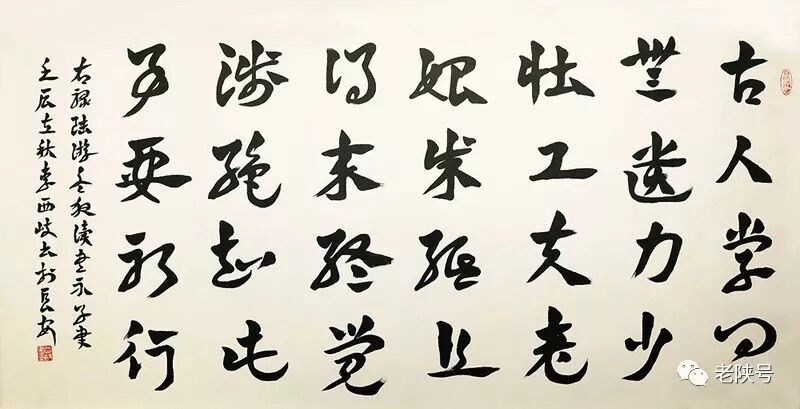 古人学问
無遗力少
壮工夫老
始成纸上
得来终觉
浅绝知此
事要躬行
右录陆游冬夜读书示子聿
壬辰立秋李西岐书于长安
老陕号